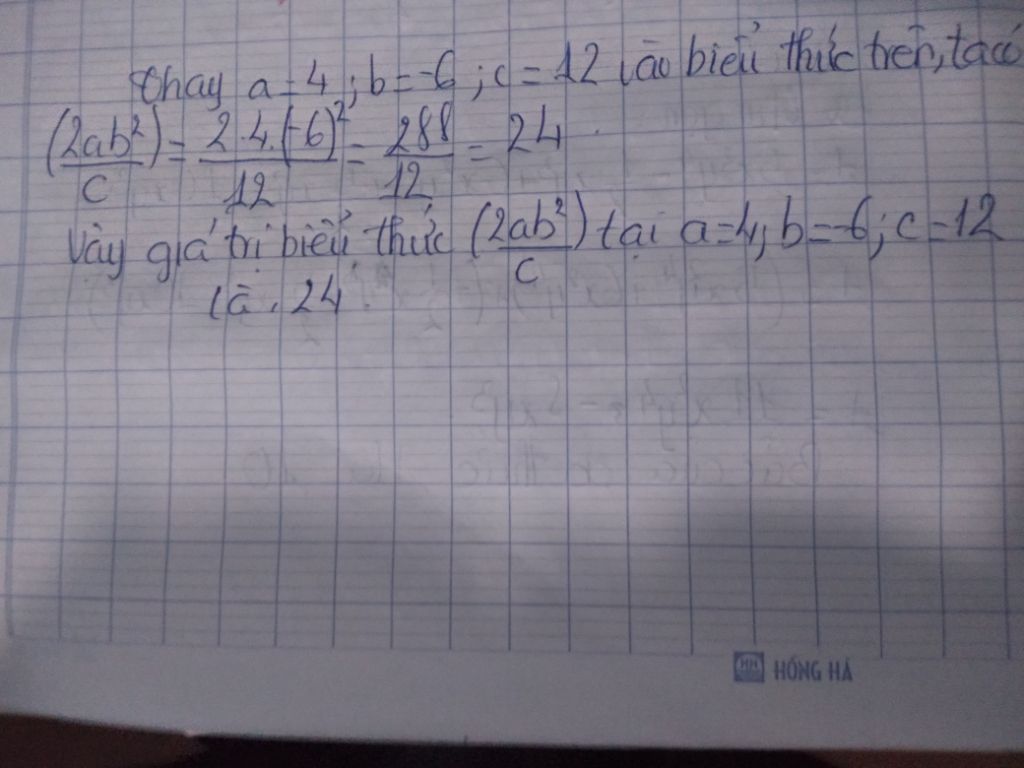 Thay a=4; b=-6; c=12 vào biểu thức trên, ta có
(2ab²/c) = 2.4.(-6)²/12 = 288/12 = 24
Vậy giá trị biểu thức (2ab²/c) tại a=4; b=-6; c=12
là. 24
HH HỒNG HÀ